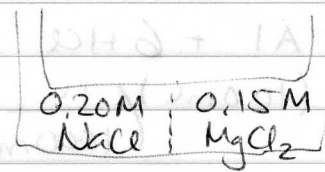 0.20M 0.15M
NaCl MgCl₂